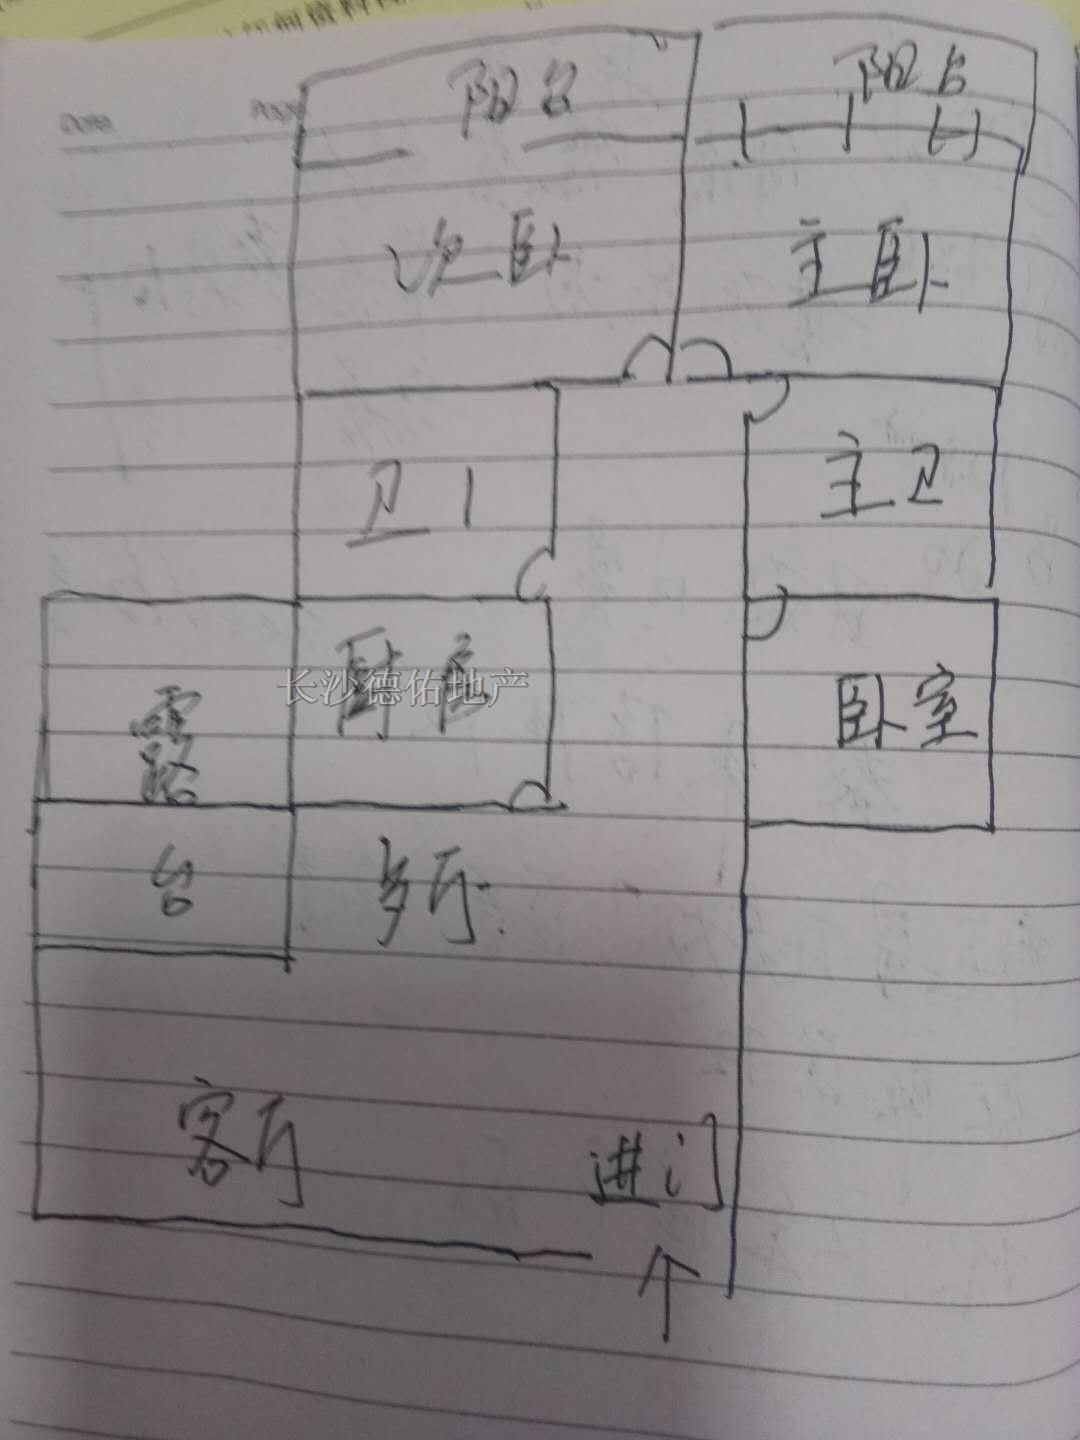 Date
Page
阳台
阳台
次卧
主卧
卫1
主卫
厨房
长沙德佑地产
露
台
卧室
多厅
客厅
进门